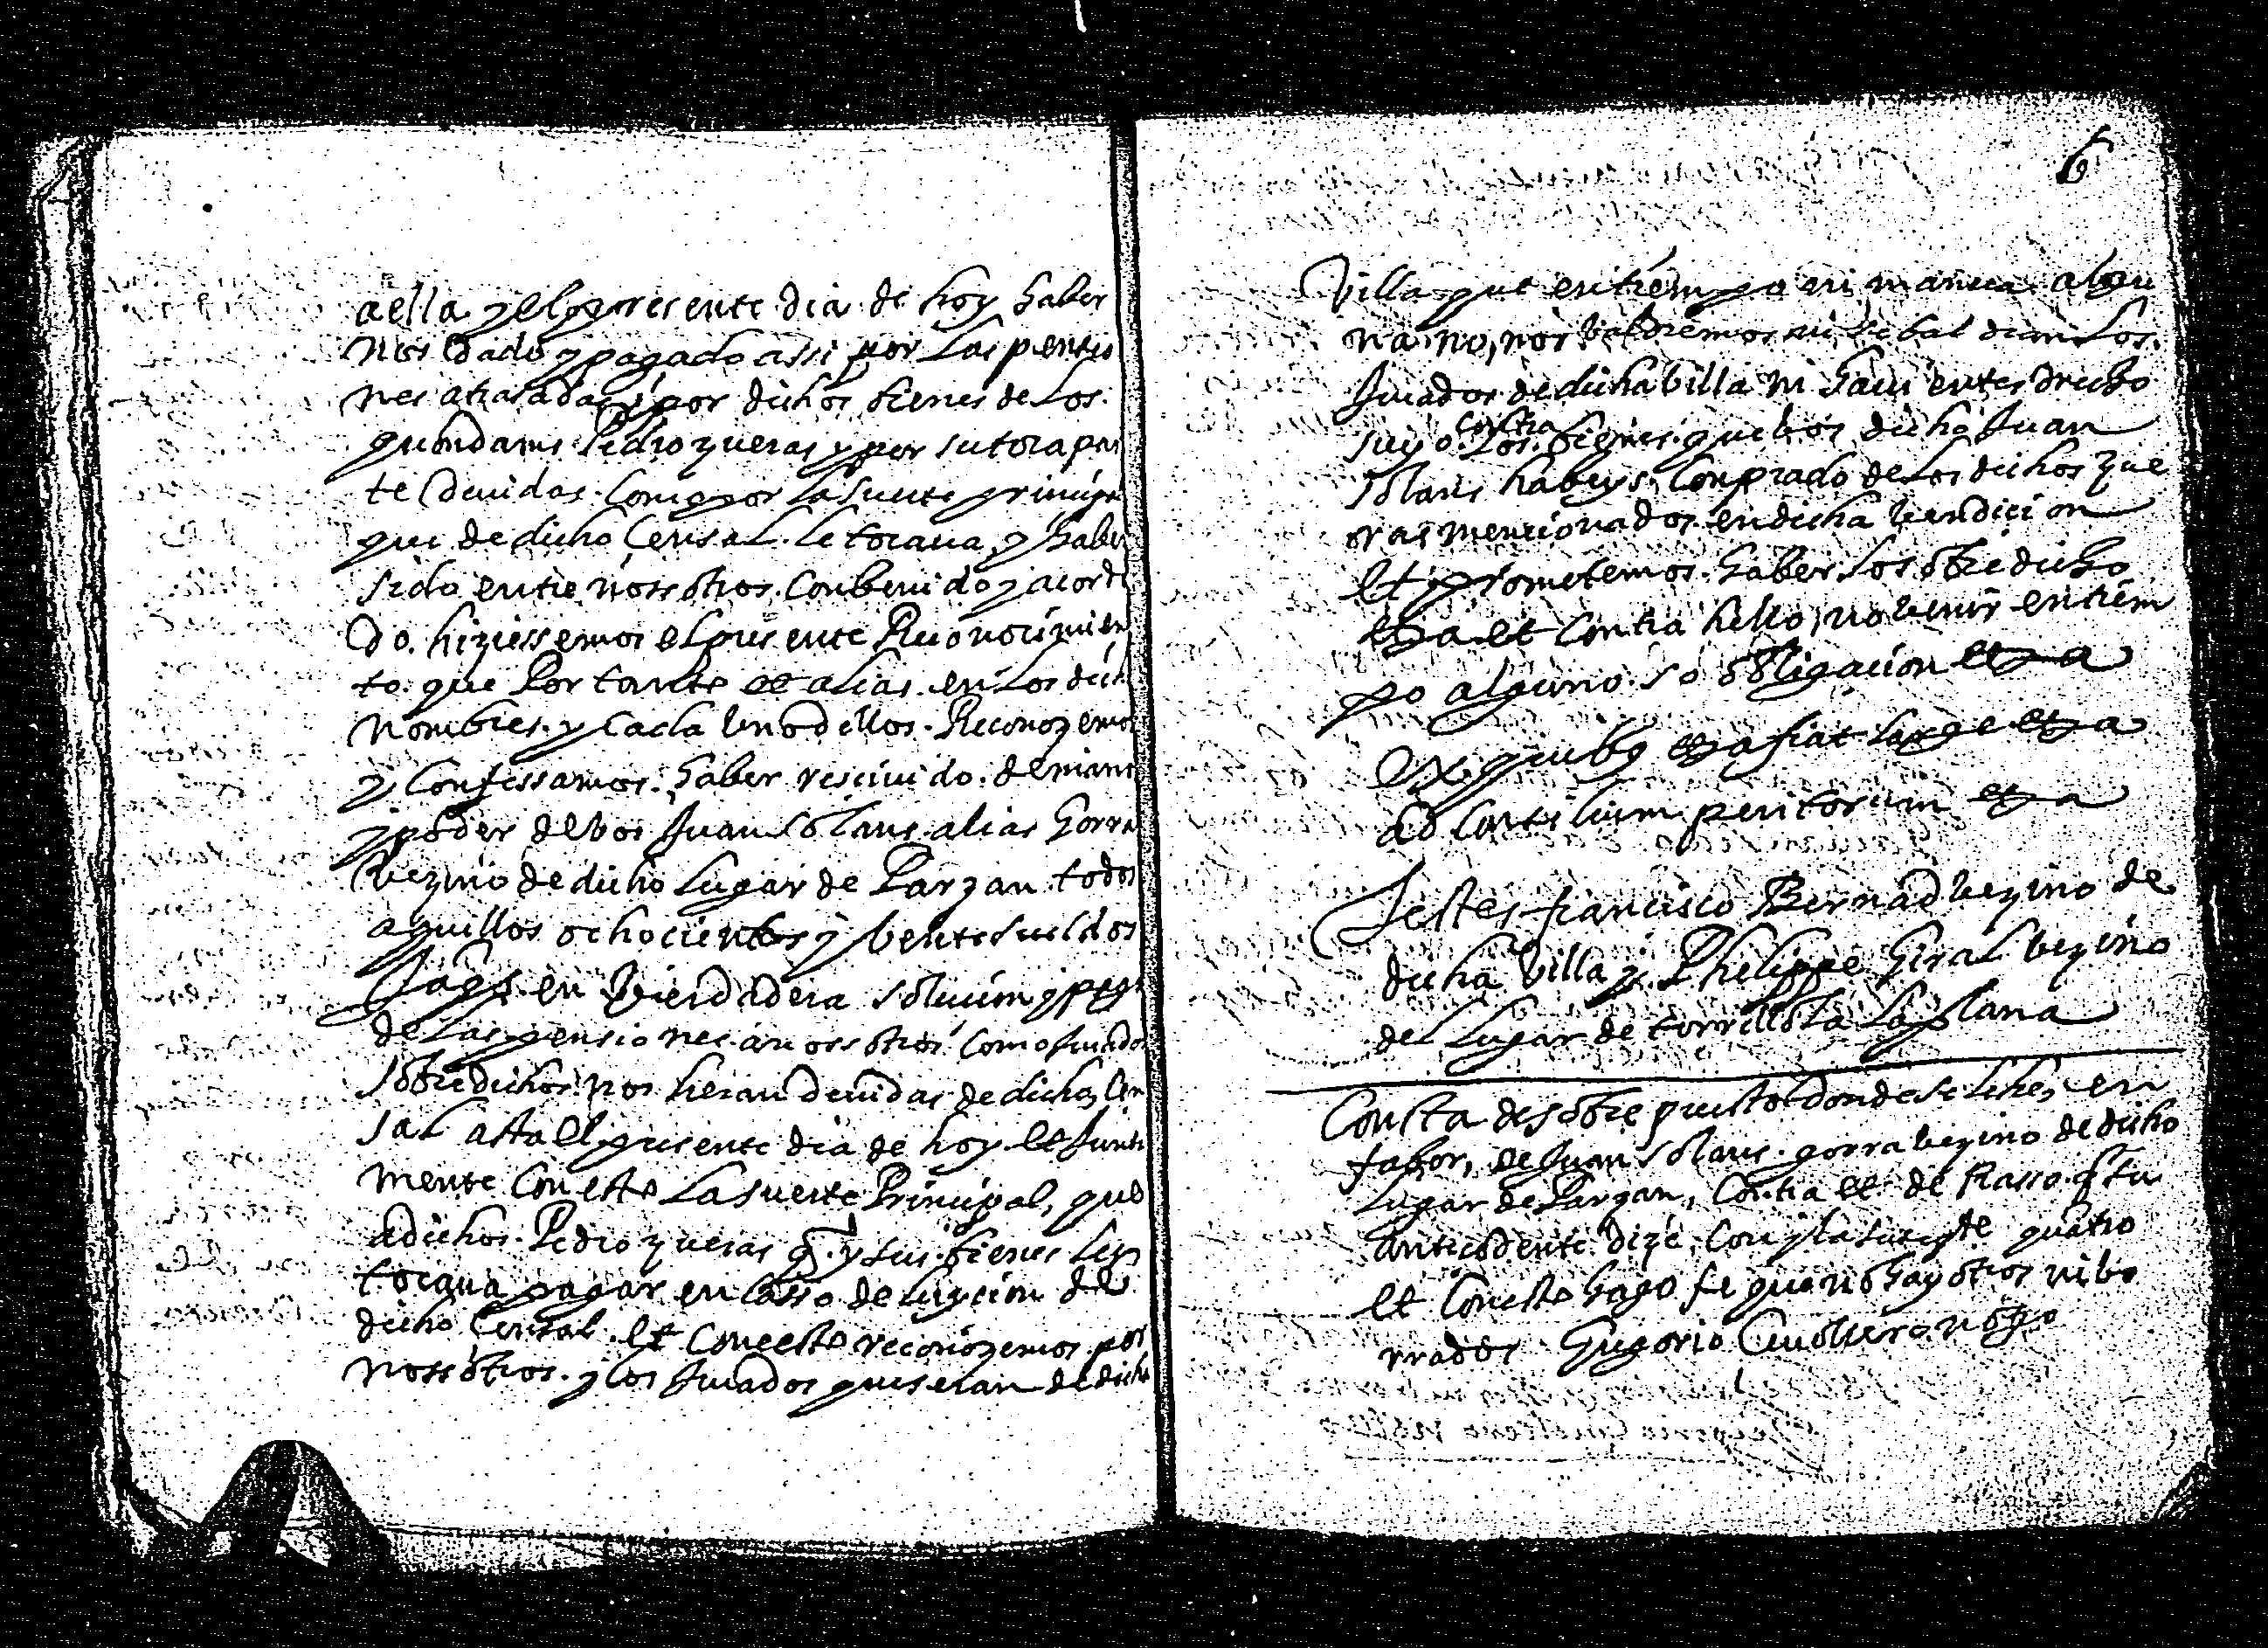 aella y el presente dia de hoy haber
nos dado y pagado assi por las pensio
nes atrasadas y por dichos bienes de los
quondams Pedro zueras y por su tocapar
te devidas como por la suerte principal
que de dicho Censal le tocava, y haber
sido entre nosotros conbenido y acorda
do hiziessemos el presente Reconocimien
to que Por tanto et alias en los dich
nombres y cada uno dellos Reconozemos
y Confessamos haber rescivido de mano
y poder de vos Juan Solans alias Gorra
vezino de dicho lugar de Parzan todos
aquellos ochocientos y bente sueldos
Jaqs. en Vierdadera solucion y paga
de las pensiones a nosotros como Jurados
sobredichos nos heran devidas de dicho Cen
sal asta el presente dia de hoy et Junta
mente con esto la suerte Principal, que
a dichos Pedro zueras qd. y sus bienes les
tocava pagar en casso de luycion de
dicho Censal. et con esto reconozemos por
nosotros y los Jurados que seran de dicha
6
Villa que en tiempo ni manera algu
na no, nos baldremos ni se baldran los
Jurados de dicha billa ni haui entes drecho
suyo contra los bienes que bos dicho Juan
Solans habeys Conprado de los dichos zue
ras mencionados en dicha bendicion
et prometemos haber lo sobredicho
etza et contra hello, no benir en tiem
po alguno so obligacion etza
Ex quibus etza fiat large etza
ad Consilium peritorum etza
Testes francisco Bernad vezino de
dicha Villa y Phelippe Giral vezino
del lugar de torrillola La plana
Consta de sobre puesto donde se lihe, en
fabor, de Juan Solans gorra vezino de dicho
lugar de Parzan, Contra et de Rasso q tu
antecedente dize, con y la suerte quatro
et Con esto hago fe que no hay otros ni bo
rrados Gregorio Cavallero noto